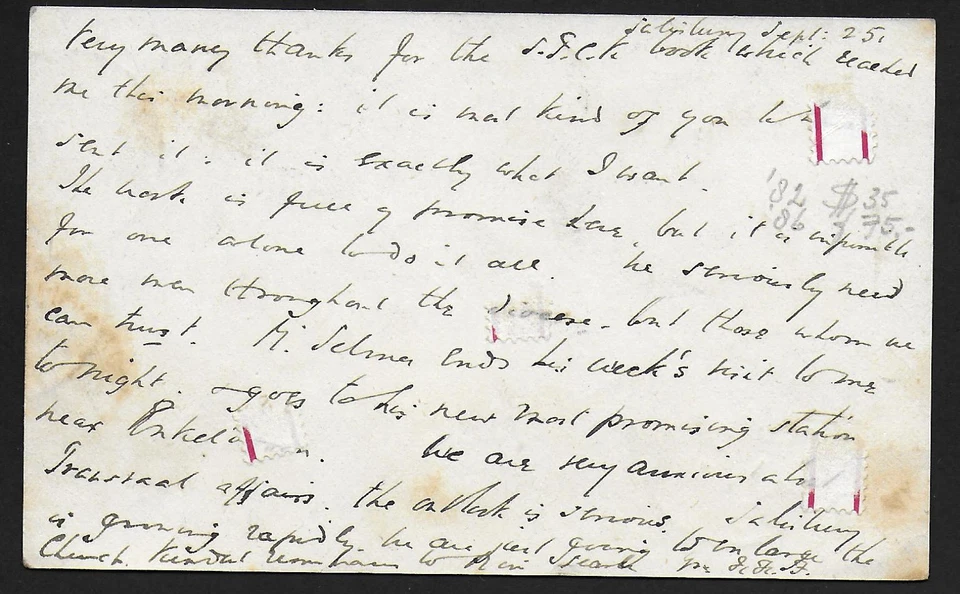 Salisbury Sept: 25.
Very many thanks for the S.P.C.K book which reached
me this morning: it is most kind of you to
sent it: it is exactly what I want.
'82 $35
The work is full of promise here, but it is impossible
'86 $75.-
for one alone to do it all. We seriously need
more men throughout the diocese - but those whom we
can trust. M. Selmer ends his week's visit to me
tonight. goes to his new most promising station
near Enkeldoorn. We are very anxious abt
Transvaal affairs. the outlook is serious. Salisbury
is growing rapidly. We are just going to enlarge the
Church. Kindest to